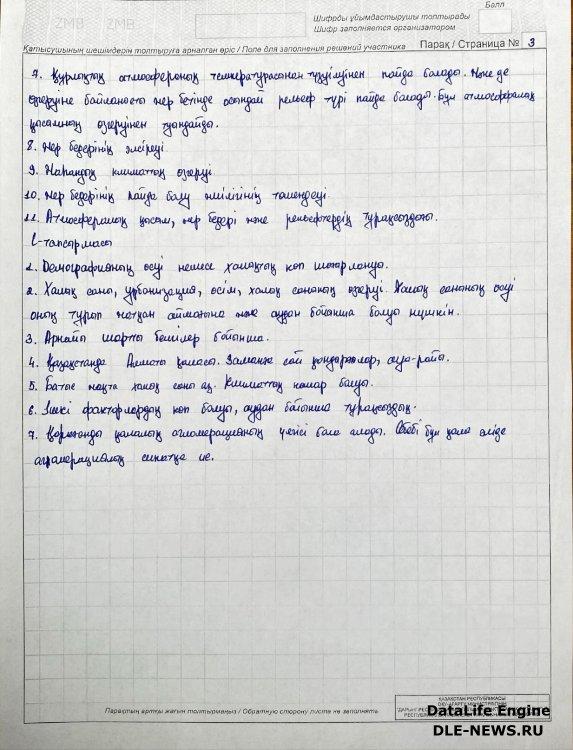 Балл
Шифрды ұйымдастырушы толтырады
Шифр заполняется организатором
Қатысушының шешімдерін толтыруға арналған өріс / Поле для заполнения решений участника Парақ / Страница № 3
7. Құрлықтың атмосфераның температурасынан түзілуінен пайда болады. Және де
өзгеруіне байланысты жер бетінде осындай рельеф түрі пайда болады. Бұл атмосфералық
қысымның өзгеруінен туындайды.
8. Жер бедерінің әлсіреуі
9. Нағандық климаттың өзгеруі.
10. Жер бедерінің пайда болу жиілігінің төмендеуі.
11. Атмосфералық қысым, жер бедері және рельефтердің тұрақсыздығы.
С-тапсырмасы
1. Демографияның өсуі немесе халықтың көп шоғырлануы.
2. Халық саны, урбанизация, өсім, халық санының өзгеруі. Халық санының өсуі
оның тұрып жатқан аймағына және аудан бойынша болуы мүмкін.
3. Арнайы шартты белгілер бойынша.
4. Қазақстанда Алматы қаласы. Заманға сай ғимараттар, ауа-райы.
5. Батыс жақта халық саны аз. Климаттың нашар болуы.
6. Ішкі факторлардың көп болуы, аудан бойынша тұрақсыздық.
7. Қарағанды қалалық агломерацияның үлгісі бола алады. Себебі бұл қала әлі де
агломерациялық сипатқа ие.
Парақтың артқы жағын толтырмаңыз / Обратную сторону листа не заполнять
ҚАЗАҚСТАН РЕСПУБЛИКАСЫ
DataLife Engine
DLE-NEWS.RU